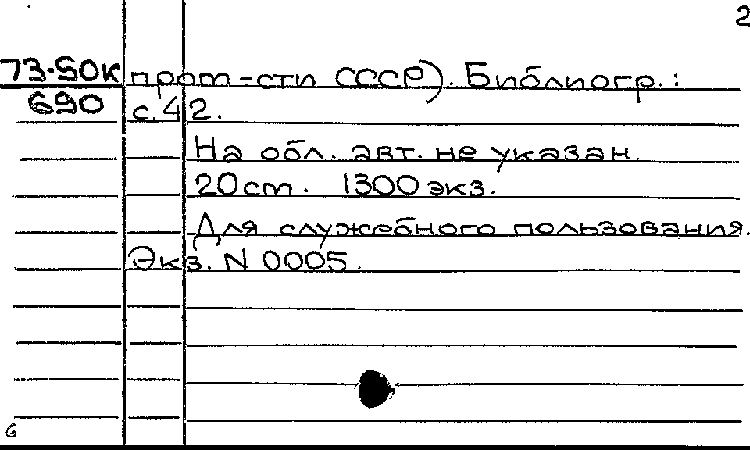 2
73-50к прот-сти СССР). Библиогр.:
690 с.42.
На обл. авт. не указан.
20 cm. 1300 экз.
Для служебного пользования.
Экз. N 0005.
6